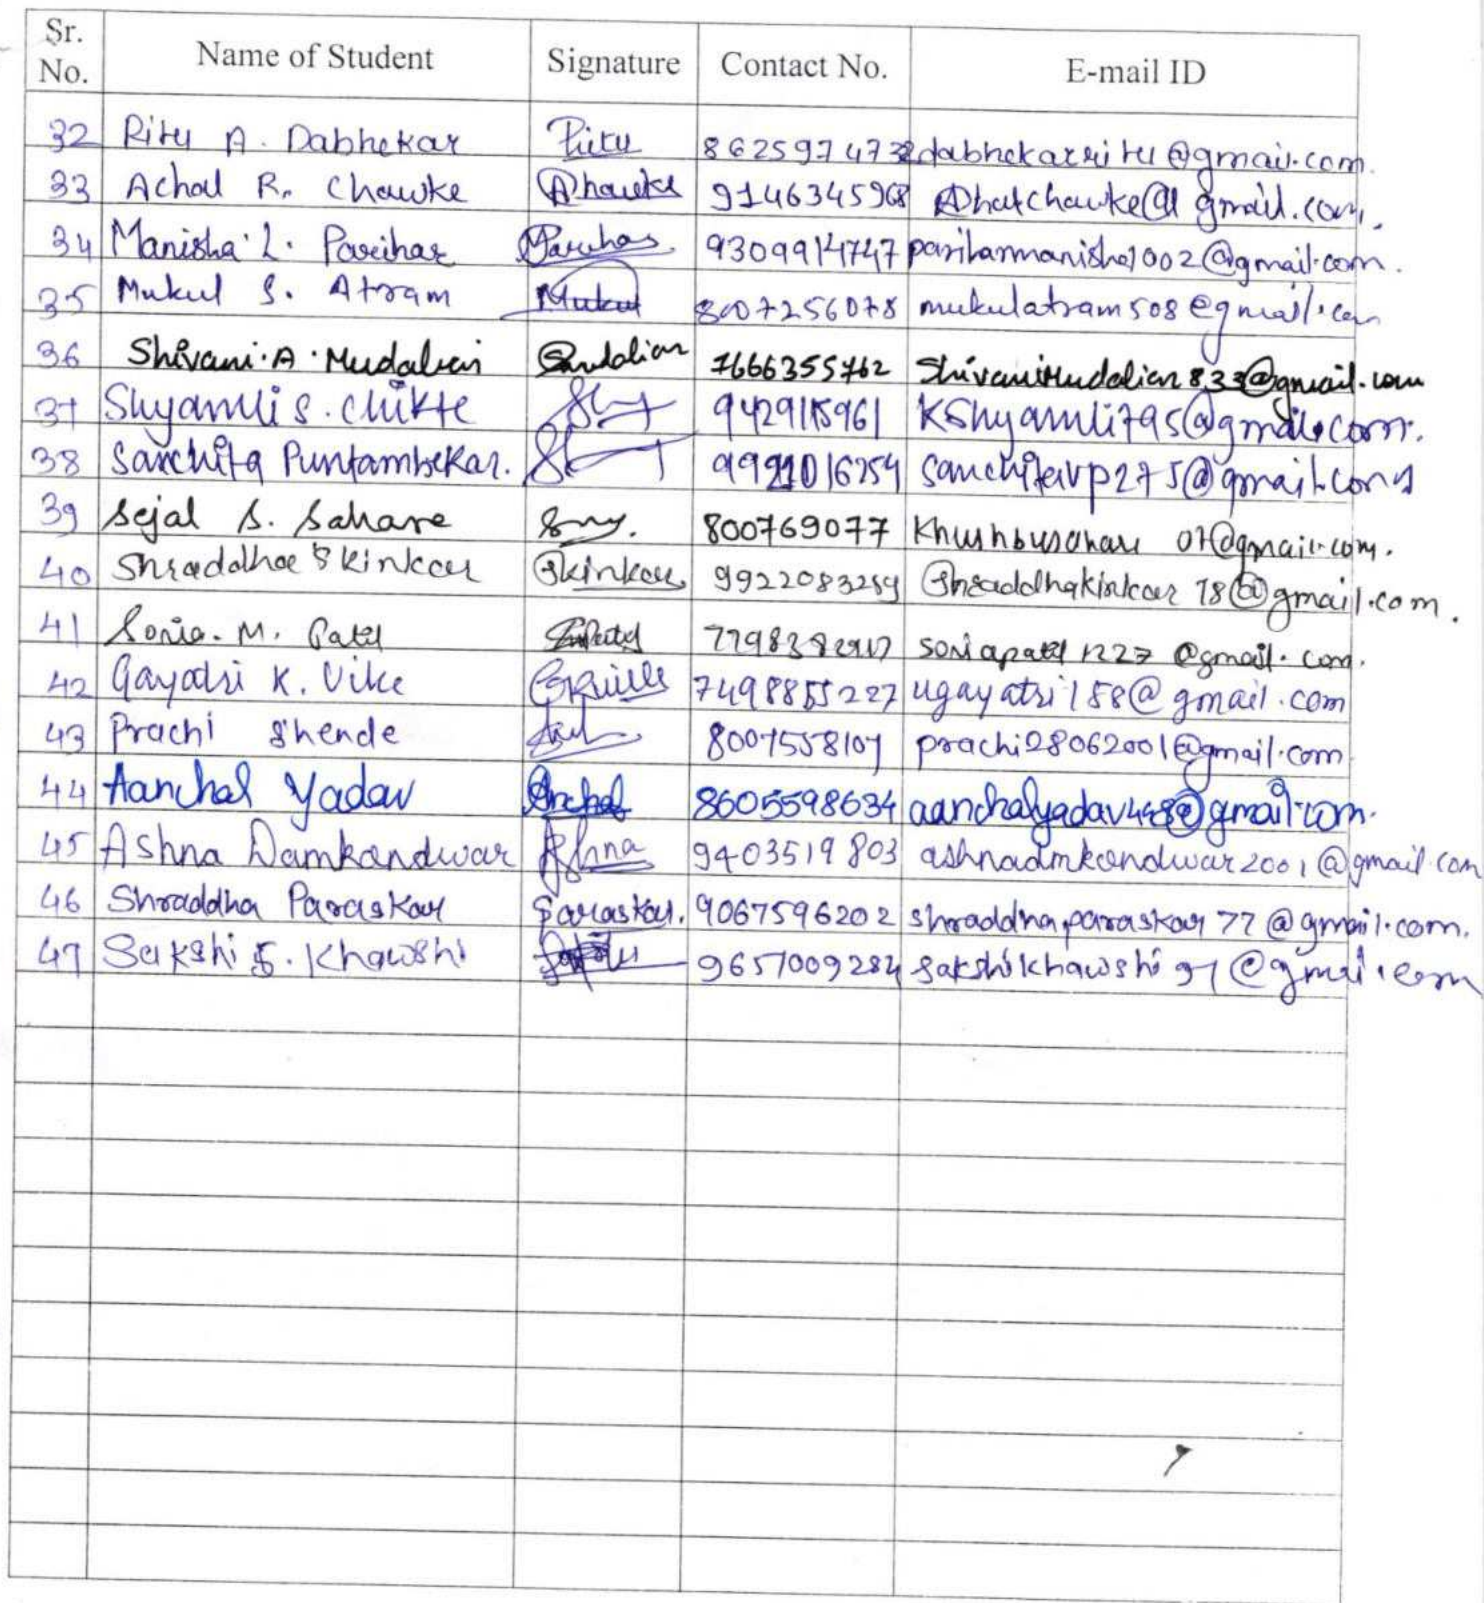 Sr. No. Name of Student Signature Contact No. E-mail ID
32 Ritu A. Dabhekar Ritu 8625974732 dabhekarritu@gmail.com.
33 Achal R. Chawke AChawke 9146345968 gmail.com.
34 Manisha L. Parihar Parihar 9309914747 pariharmanisha1002@gmail.com.
35 Mukul S. Atram Mukul 8007256078 mukulatram508@gmail.com
36 Shivani.A.Mudaliar 7666355762 Shivanimudaliar833@gmail.com
37 Shyamli S. Chikte 9429115961 Kshyamli795@gmail.com.
38 Sanchita Puntambekar. sanchitavp275@gmail.com
39 Sejal S. Sahare 800769077 Khushbusahare 07@gmail.com.
40 Shraddha S Kinkar Skinkar 9922083259 Shraddhakinkar 78@gmail.com.
41 Sonia. M. Patil soniapatil 1227 @gmail.com.
42 Gayatri K. Uike GKUike 7498855227 ugayatri158@gmail.com
43 Prachi Shende 8007558107 prachi28062001@gmail.com
44 Aanchal Yadav Anchal 8605598634 aanchalyadav448@gmail.com.
45 Ashna Damkondwar Ashna 9403519803 ashnadmkondwar2001@gmail.com
46 Shraddha Paraskar Paraskar. 9067596202 shraddhaparaskar77@gmail.com.
47 Sakshi S. Khawshi 9657009284 sakshikhawshi97@gmail.com